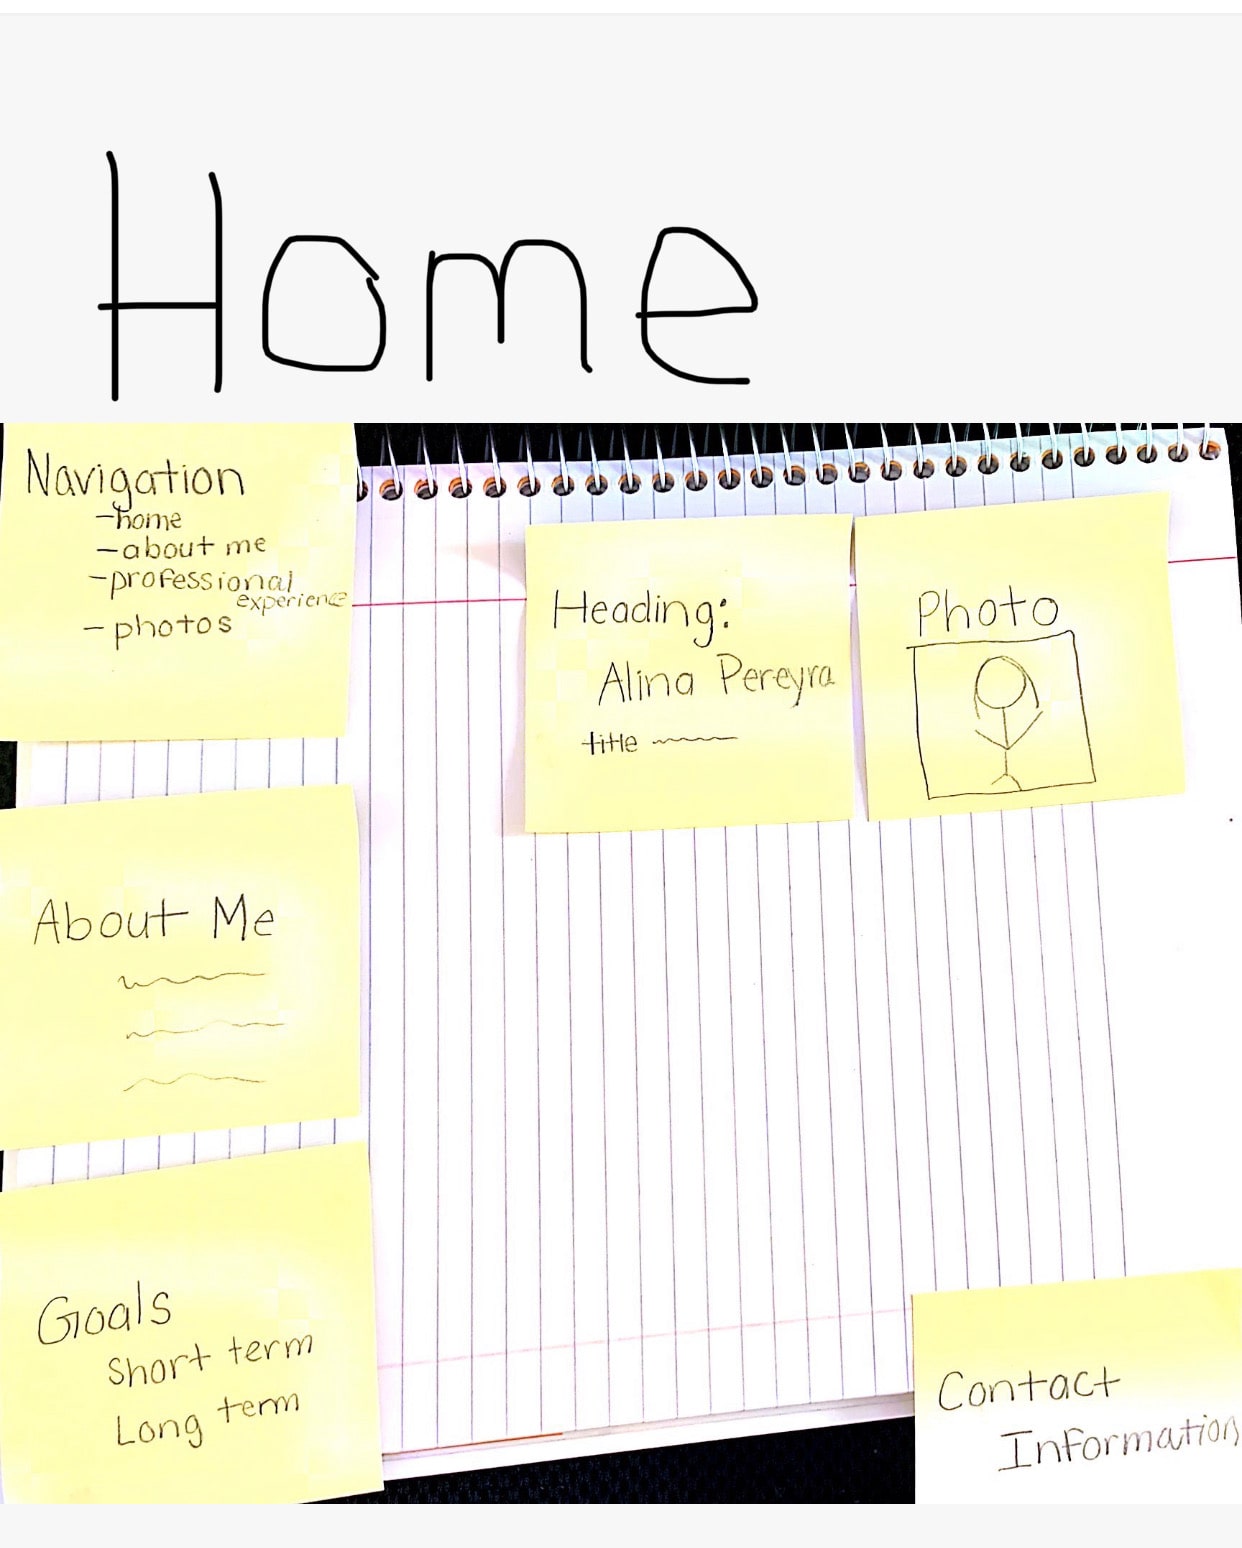 Home
Navigation
-home
-about me
-professional
experience
- photos
Heading:
Alina Pereyra
title
Photo
About Me
Goals
Short term
Long term
Contact
Information